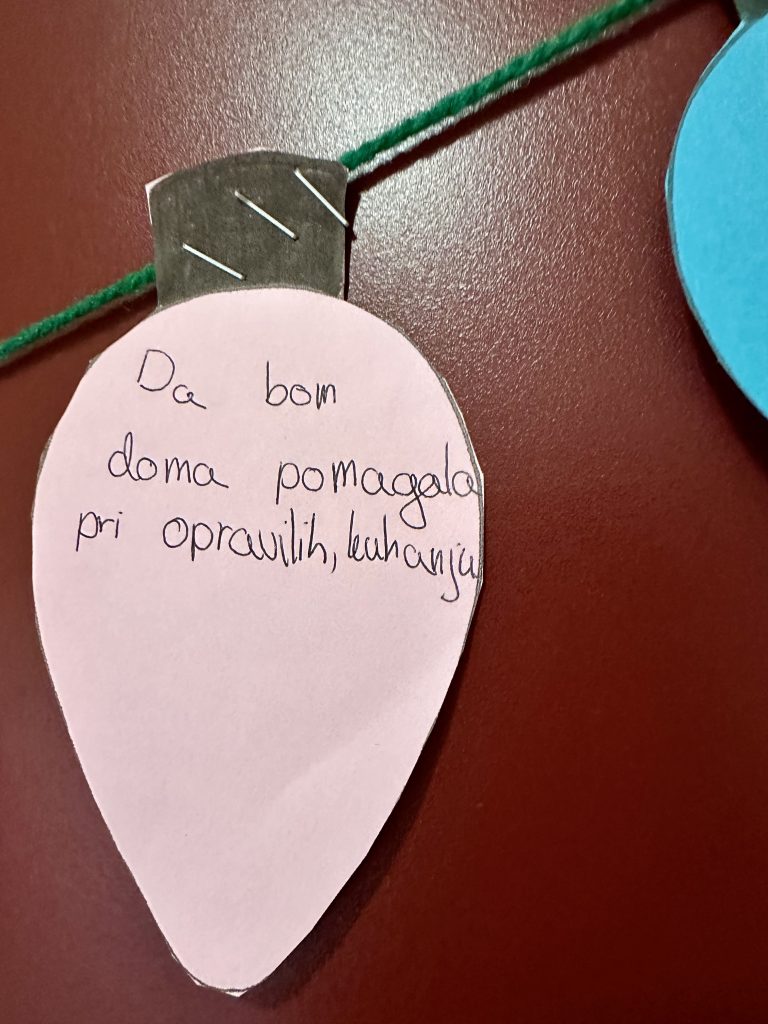 Da bom
doma pomagala
pri opravilih, kuhanju